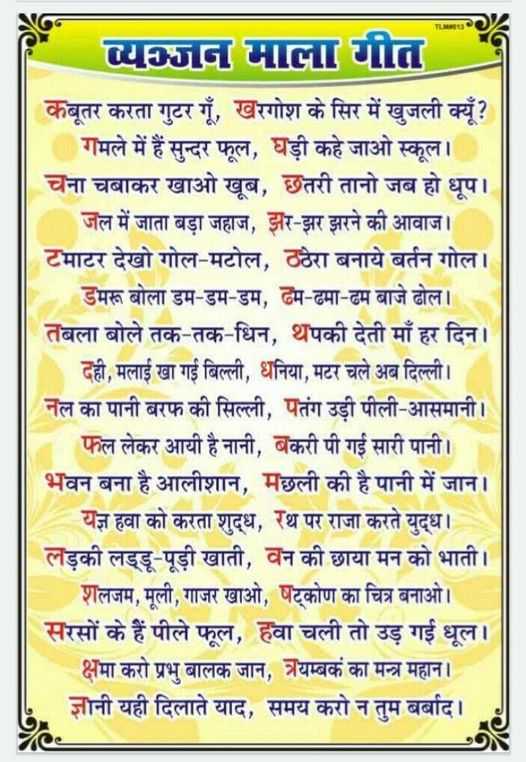 TLM#613
व्यञ्जन माला गीत
कबूतर करता गुटर गूँ, खरगोश के सिर में खुजली क्यूँ?
गमले में हैं सुन्दर फूल, घड़ी कहे जाओ स्कूल।
चना चबाकर खाओ खूब, छतरी तानो जब हो धूप।
जल में जाता बड़ा जहाज, झर-झर झरने की आवाज।
टमाटर देखो गोल-मटोल, ठठेरा बनाये बर्तन गोल।
डमरू बोला डम-डम-डम, ढम-ढमा-ढम बाजे ढोल।
तबला बोले तक-तक-धिन, थपकी देती माँ हर दिन।
दही, मलाई खा गई बिल्ली, धनिया, मटर चले अब दिल्ली।
नल का पानी बरफ की सिल्ली, पतंग उड़ी पीली-आसमानी।
फल लेकर आयी है नानी, बकरी पी गई सारी पानी।
भवन बना है आलीशान, मछली की है पानी में जान।
यज्ञ हवा को करता शुद्ध, रथ पर राजा करते युद्ध।
लड़की लड्डू-पूड़ी खाती, वन की छाया मन को भाती।
शलजम, मूली, गाजर खाओ, षट्कोण का चित्र बनाओ।
सरसों के हैं पीले फूल, हवा चली तो उड़ गई धूल।
क्षमा करो प्रभु बालक जान, त्रयम्बकं का मन्त्र महान।
ज्ञानी यही दिलाते याद, समय करो न तुम बर्बाद।